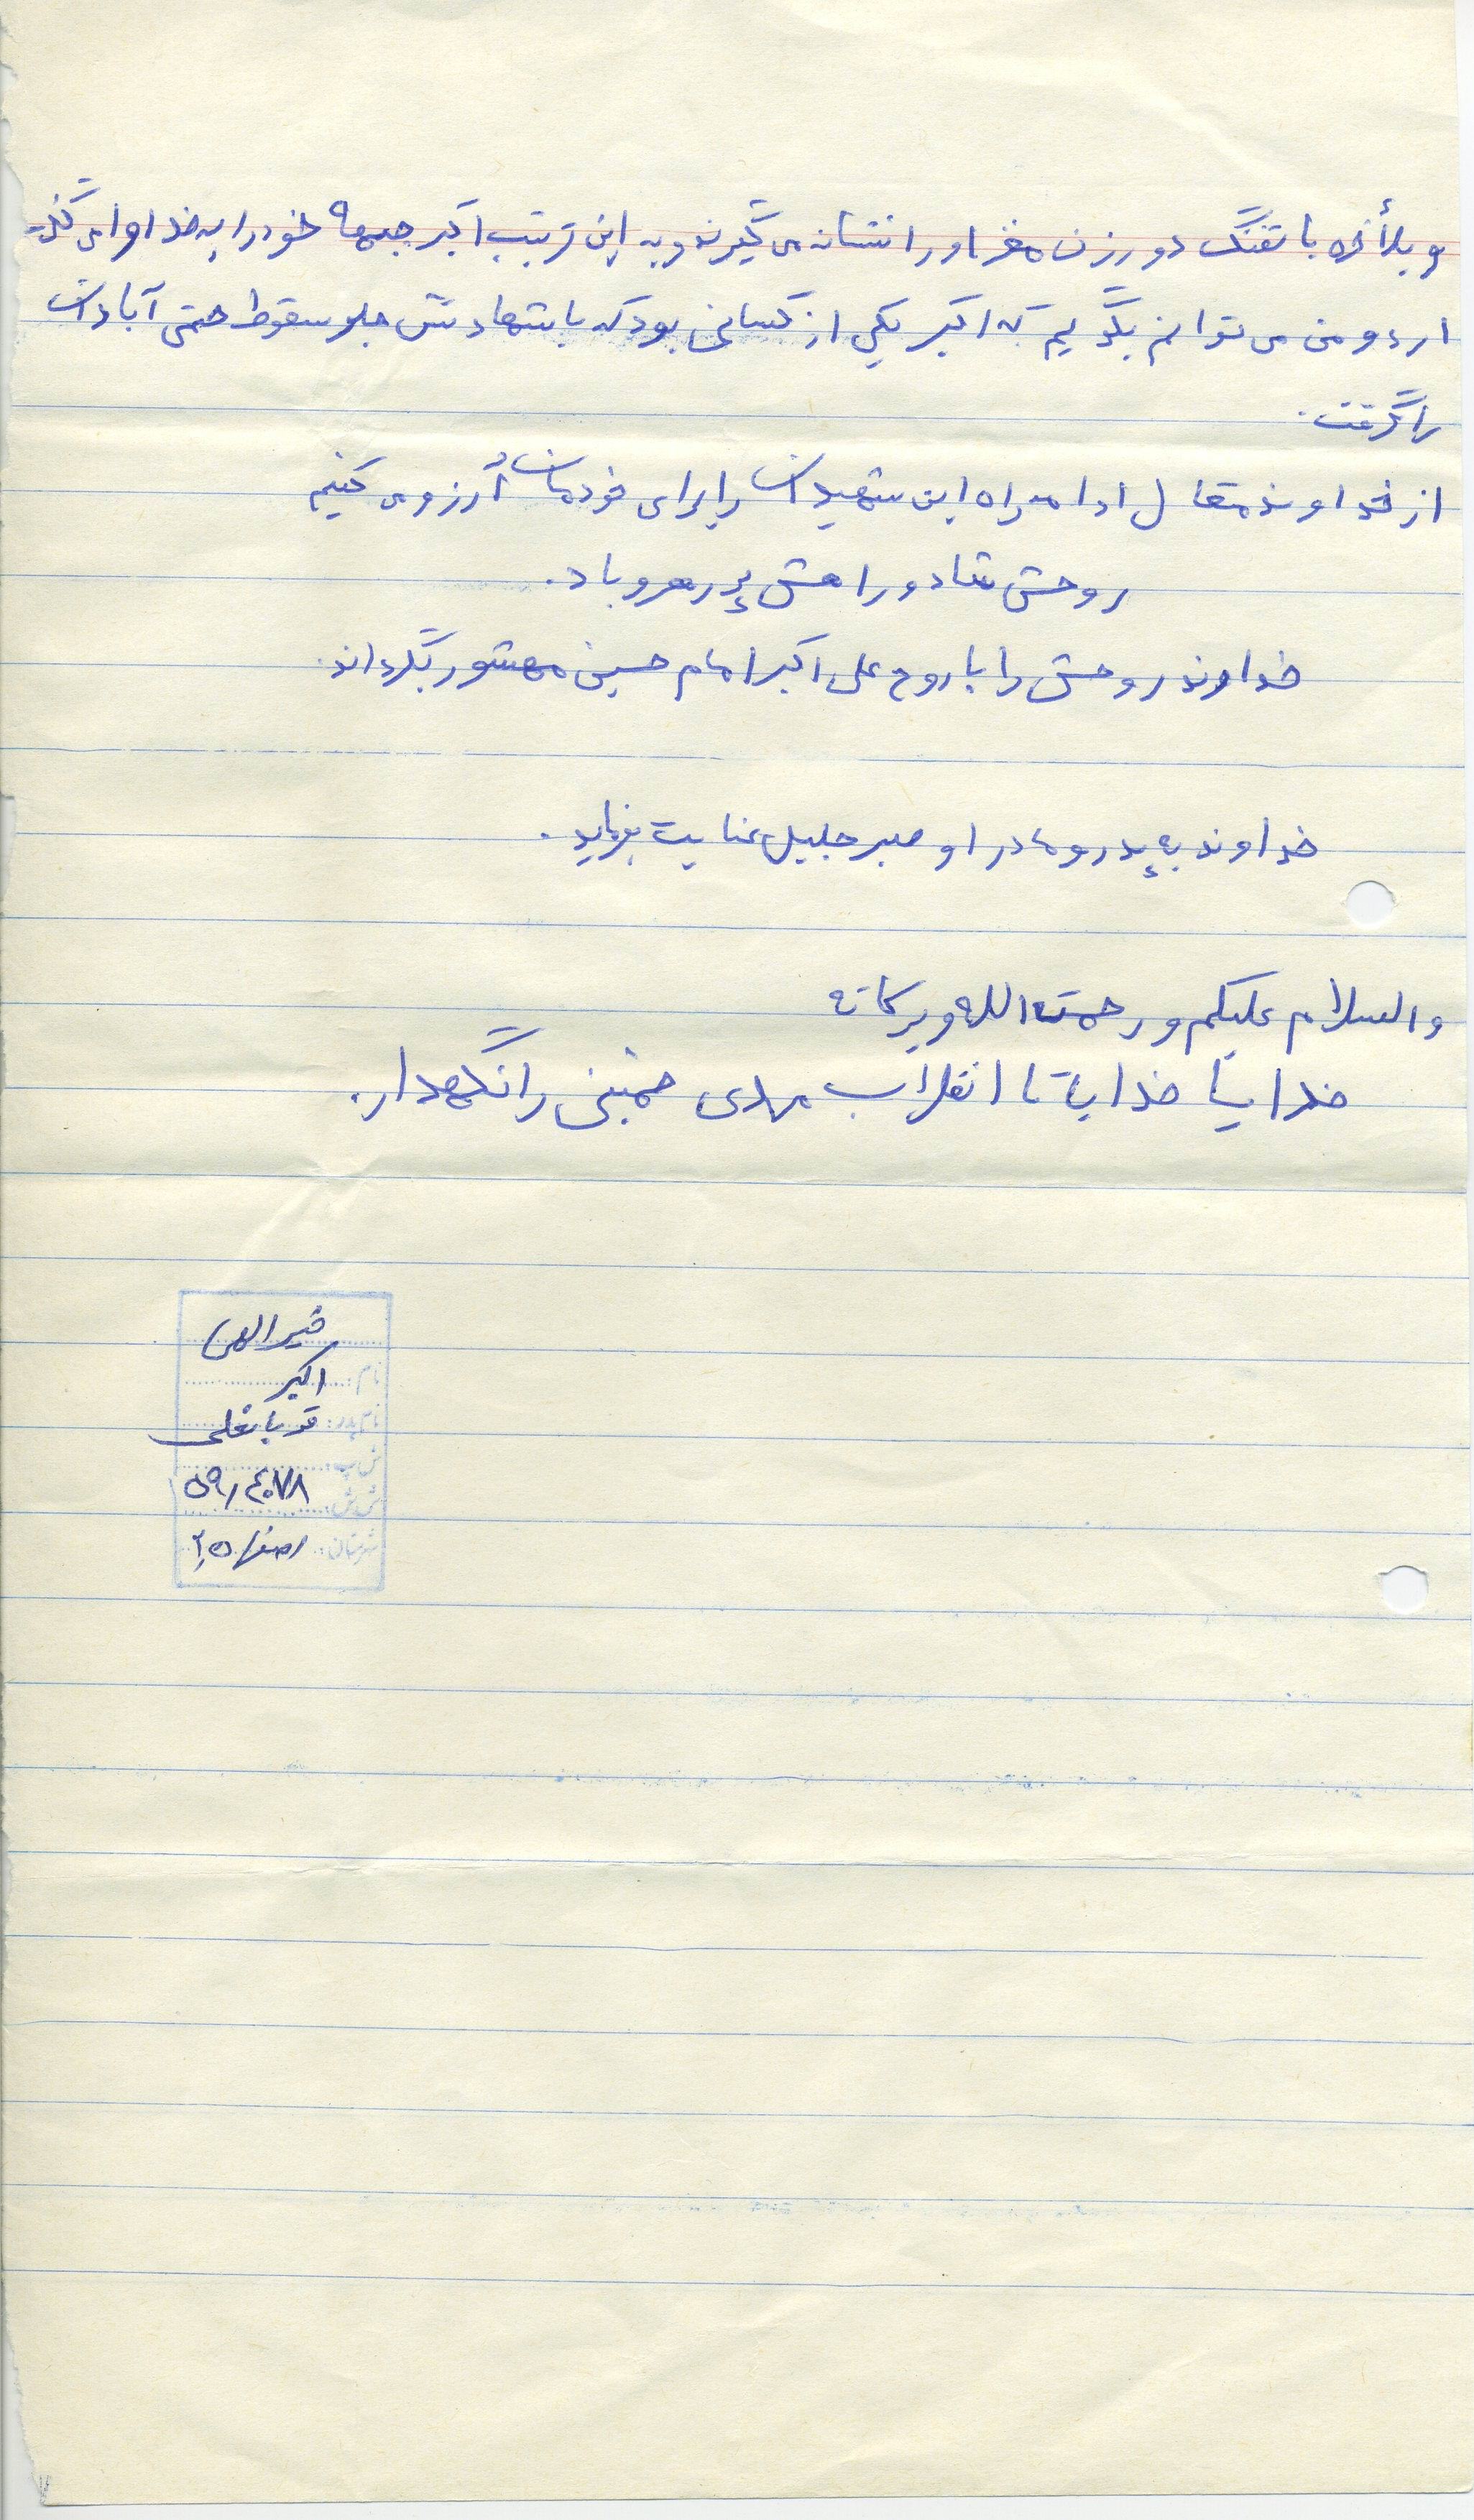 و بلأخره با تفنگ دورزن مغز او را نشانه می گیرند و به این ترتیب اکبر جبهه خود را به خدا وا می گذ
ارد و من می توانم بگویم که اکبر یکی از کسانی بود که با شهادتش جلو سقوط حتمی آبادان
را گرفت.
از خداوند متعال ادامه راه این شهیدان را برای خودمان آرزو می کنیم
روحش شاد و راهش پر رهرو باد.
خداوند روحش را با روح علی اکبر امام حسین مهشور بگرداند.
خداوند به پدر و مادر او صبر جلیل عنایت بفرماید.
والسلام علیکم و رحمته الله و برکاته
خدایا خدایا تا انقلاب مهدی خمینی را نگهدار.
خیرالهی
نام: اکبر
نام پدر: قربانعلی
ش پ:
ش ش: ۵۹/۴۰۷۸
شهرستان: اصفهان